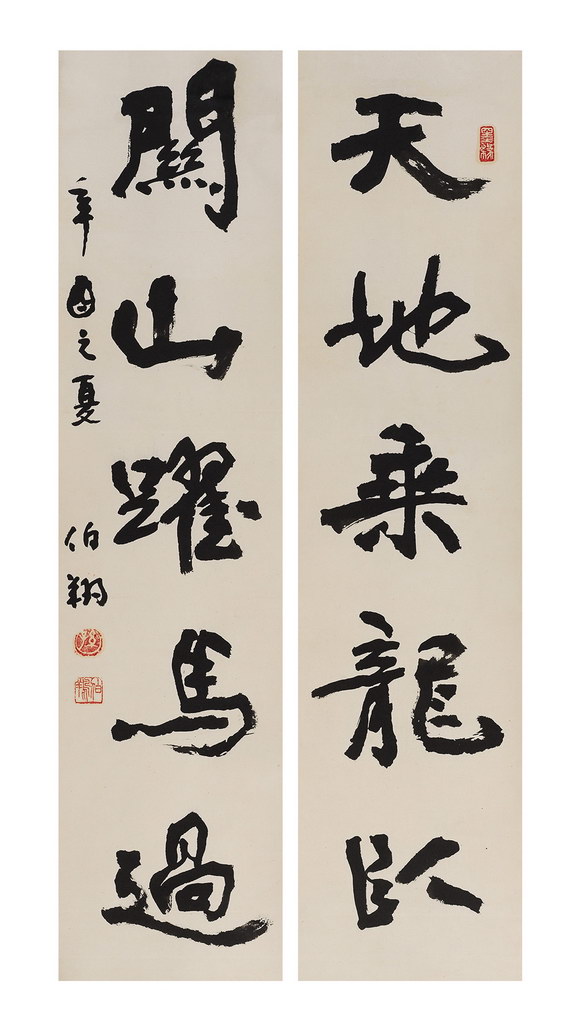 天地乘龍臥
關山躍馬過
辛酉之夏 伯翔